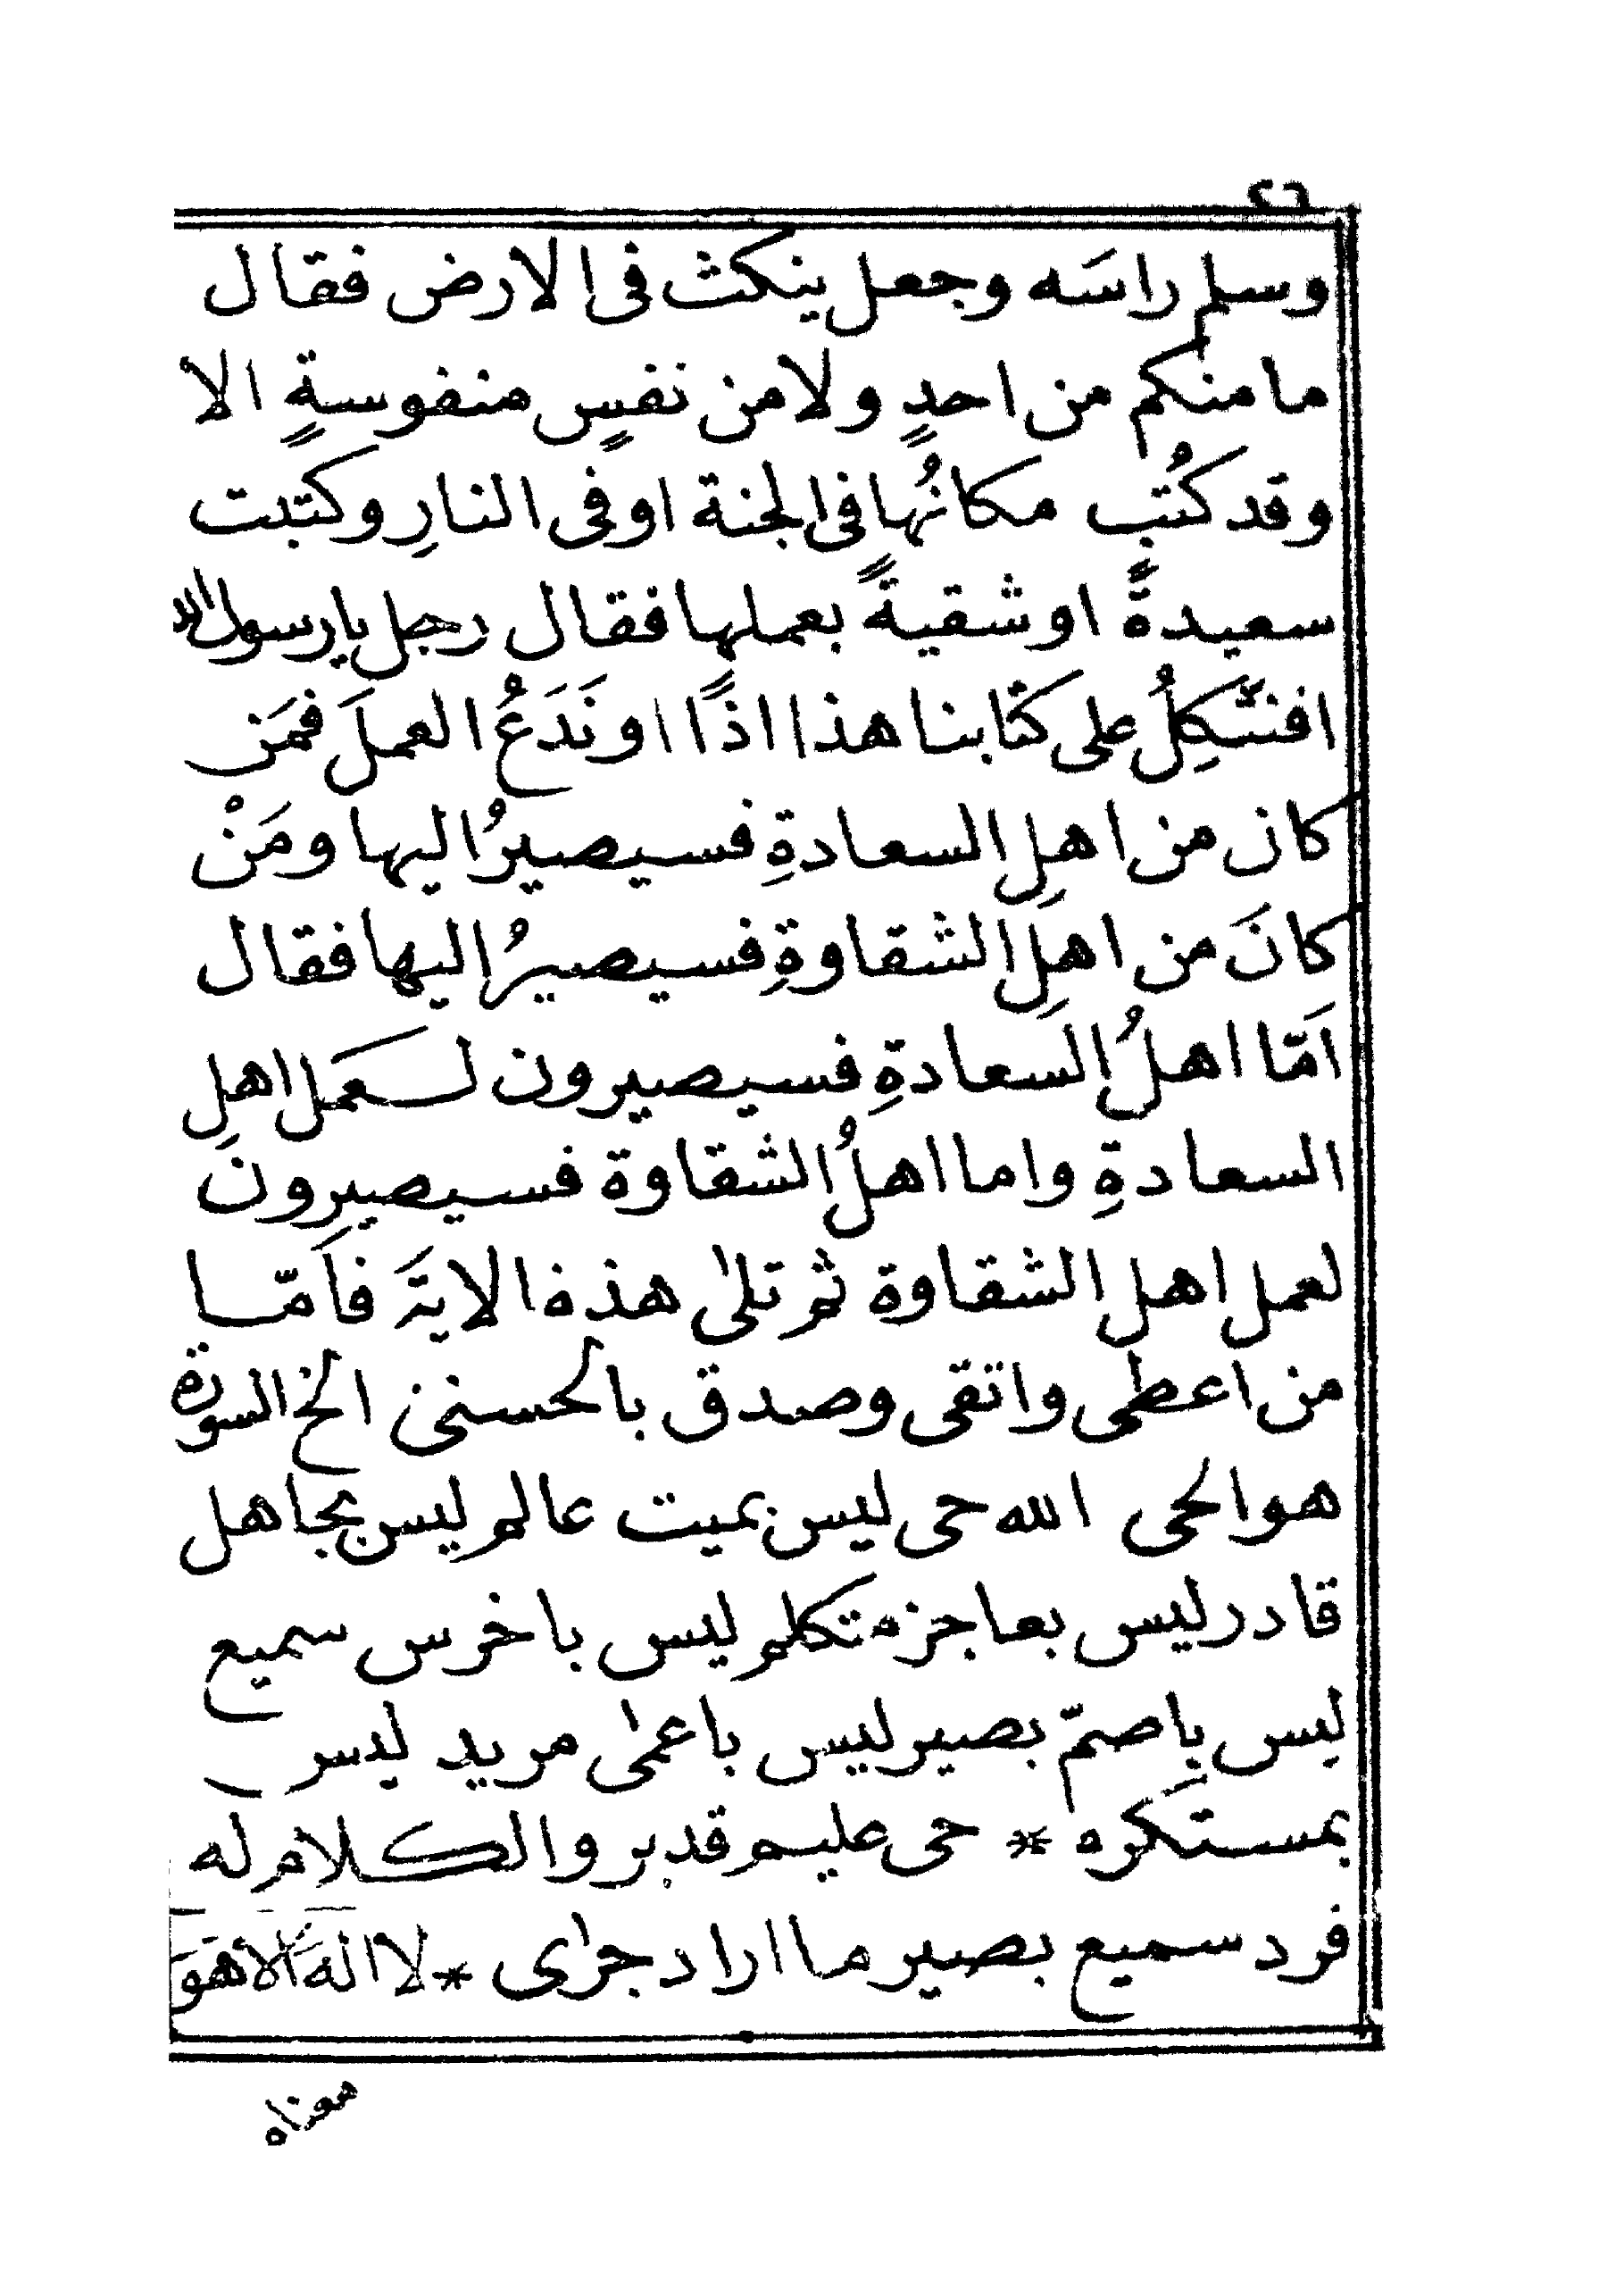 ٢٦
وسلم راسَه وجعل ينكث فى الارض فقال
ما منكم من احدٍ ولا من نفسٍ منفوسةٍ الا
وقد كُتب مكانُها فى الجنة او فى النارِ وكتبت
سعيدةً او شقيةً بعملها فقال رجل يا رسول الله
افنتّكِلُ على كتابنا هذا اذًا او نَدَعُ العملَ فمَن
كان من اهلِ السعادةِ فسيصيرُ اليها ومَنْ
كانَ من اهلِ الشقاوةِ فسيصيرُ اليها فقال
اَمّا اهلُ السعادةِ فسيصيرون لعَمل اهلِ
السعادةِ واما اهلُ الشقاوة فسيصيرون
لعمل اهل الشقاوة ثم تلىٰ هذه الايةَ فاَمّا
من اعطى واتقى وصدق بالحسنىٰ الخ السورة
هو الحى الله حى ليس بميت عالم ليس بجاهل
قادر ليس بعاجز متكلم ليس باخرس سميع
ليس باصمّ بصير ليس باعمىٰ مريد ليس
بمستكرَه * حى عليم قدير والكلام له
فرد سميع بصير ما اراد جرٰى * لا الهَ الا هوَ
معناه